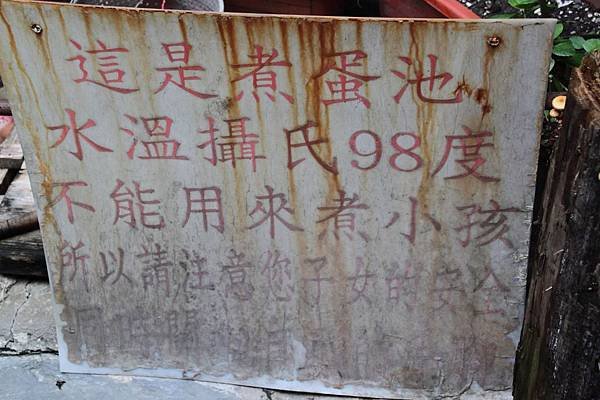 這是煮蛋池
水溫攝氏98度
不能用來煮小孩
所以請注意您子女的安全